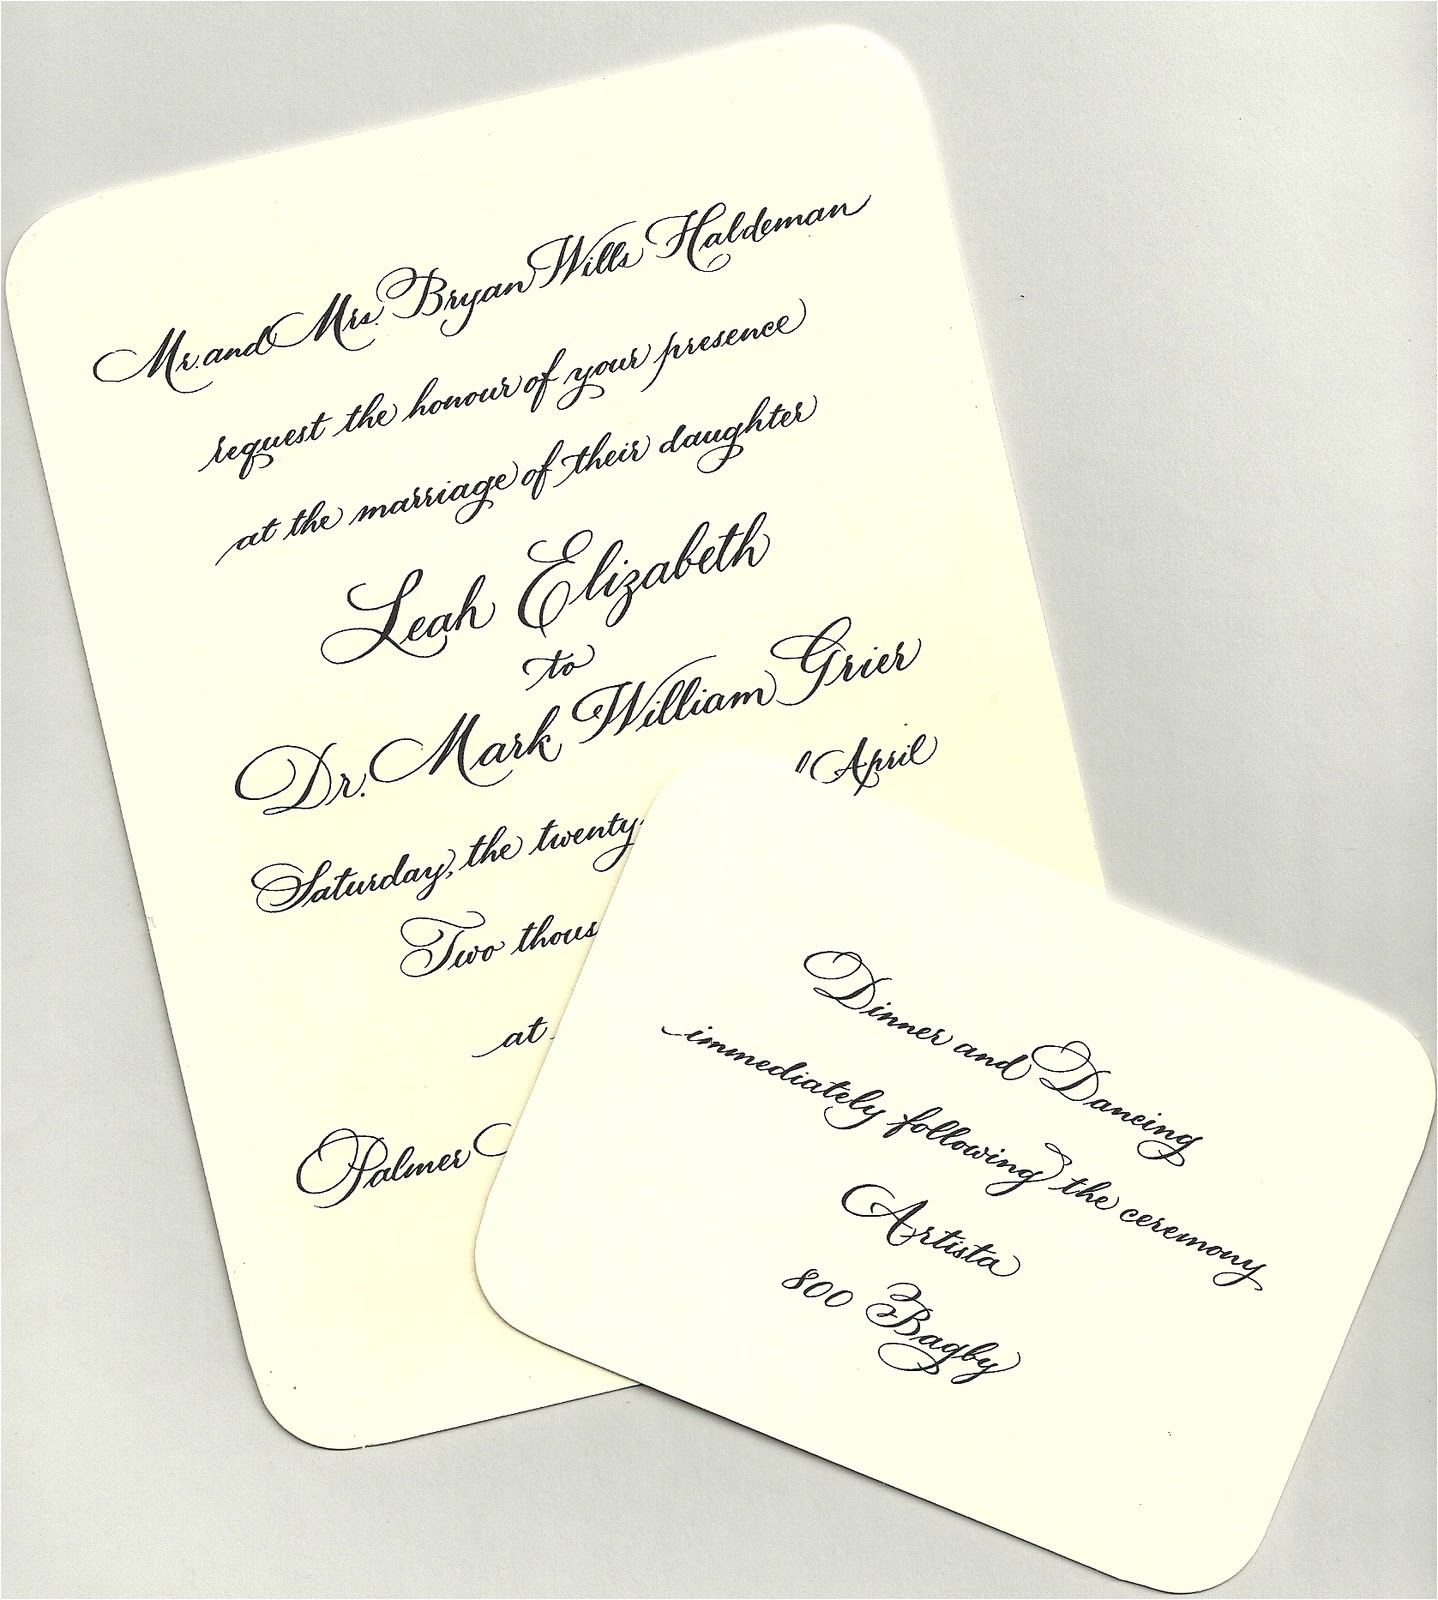 Mr. and Mrs. Bryan Wills Haldeman
request the honour of your presence
at the marriage of their daughter
Leah Elizabeth
to
Dr. Mark William Grier
Saturday, the twenty- April
Two thous
at
Palmer
Dinner and Dancing
immediately following the ceremony
Artista
800 Bagby